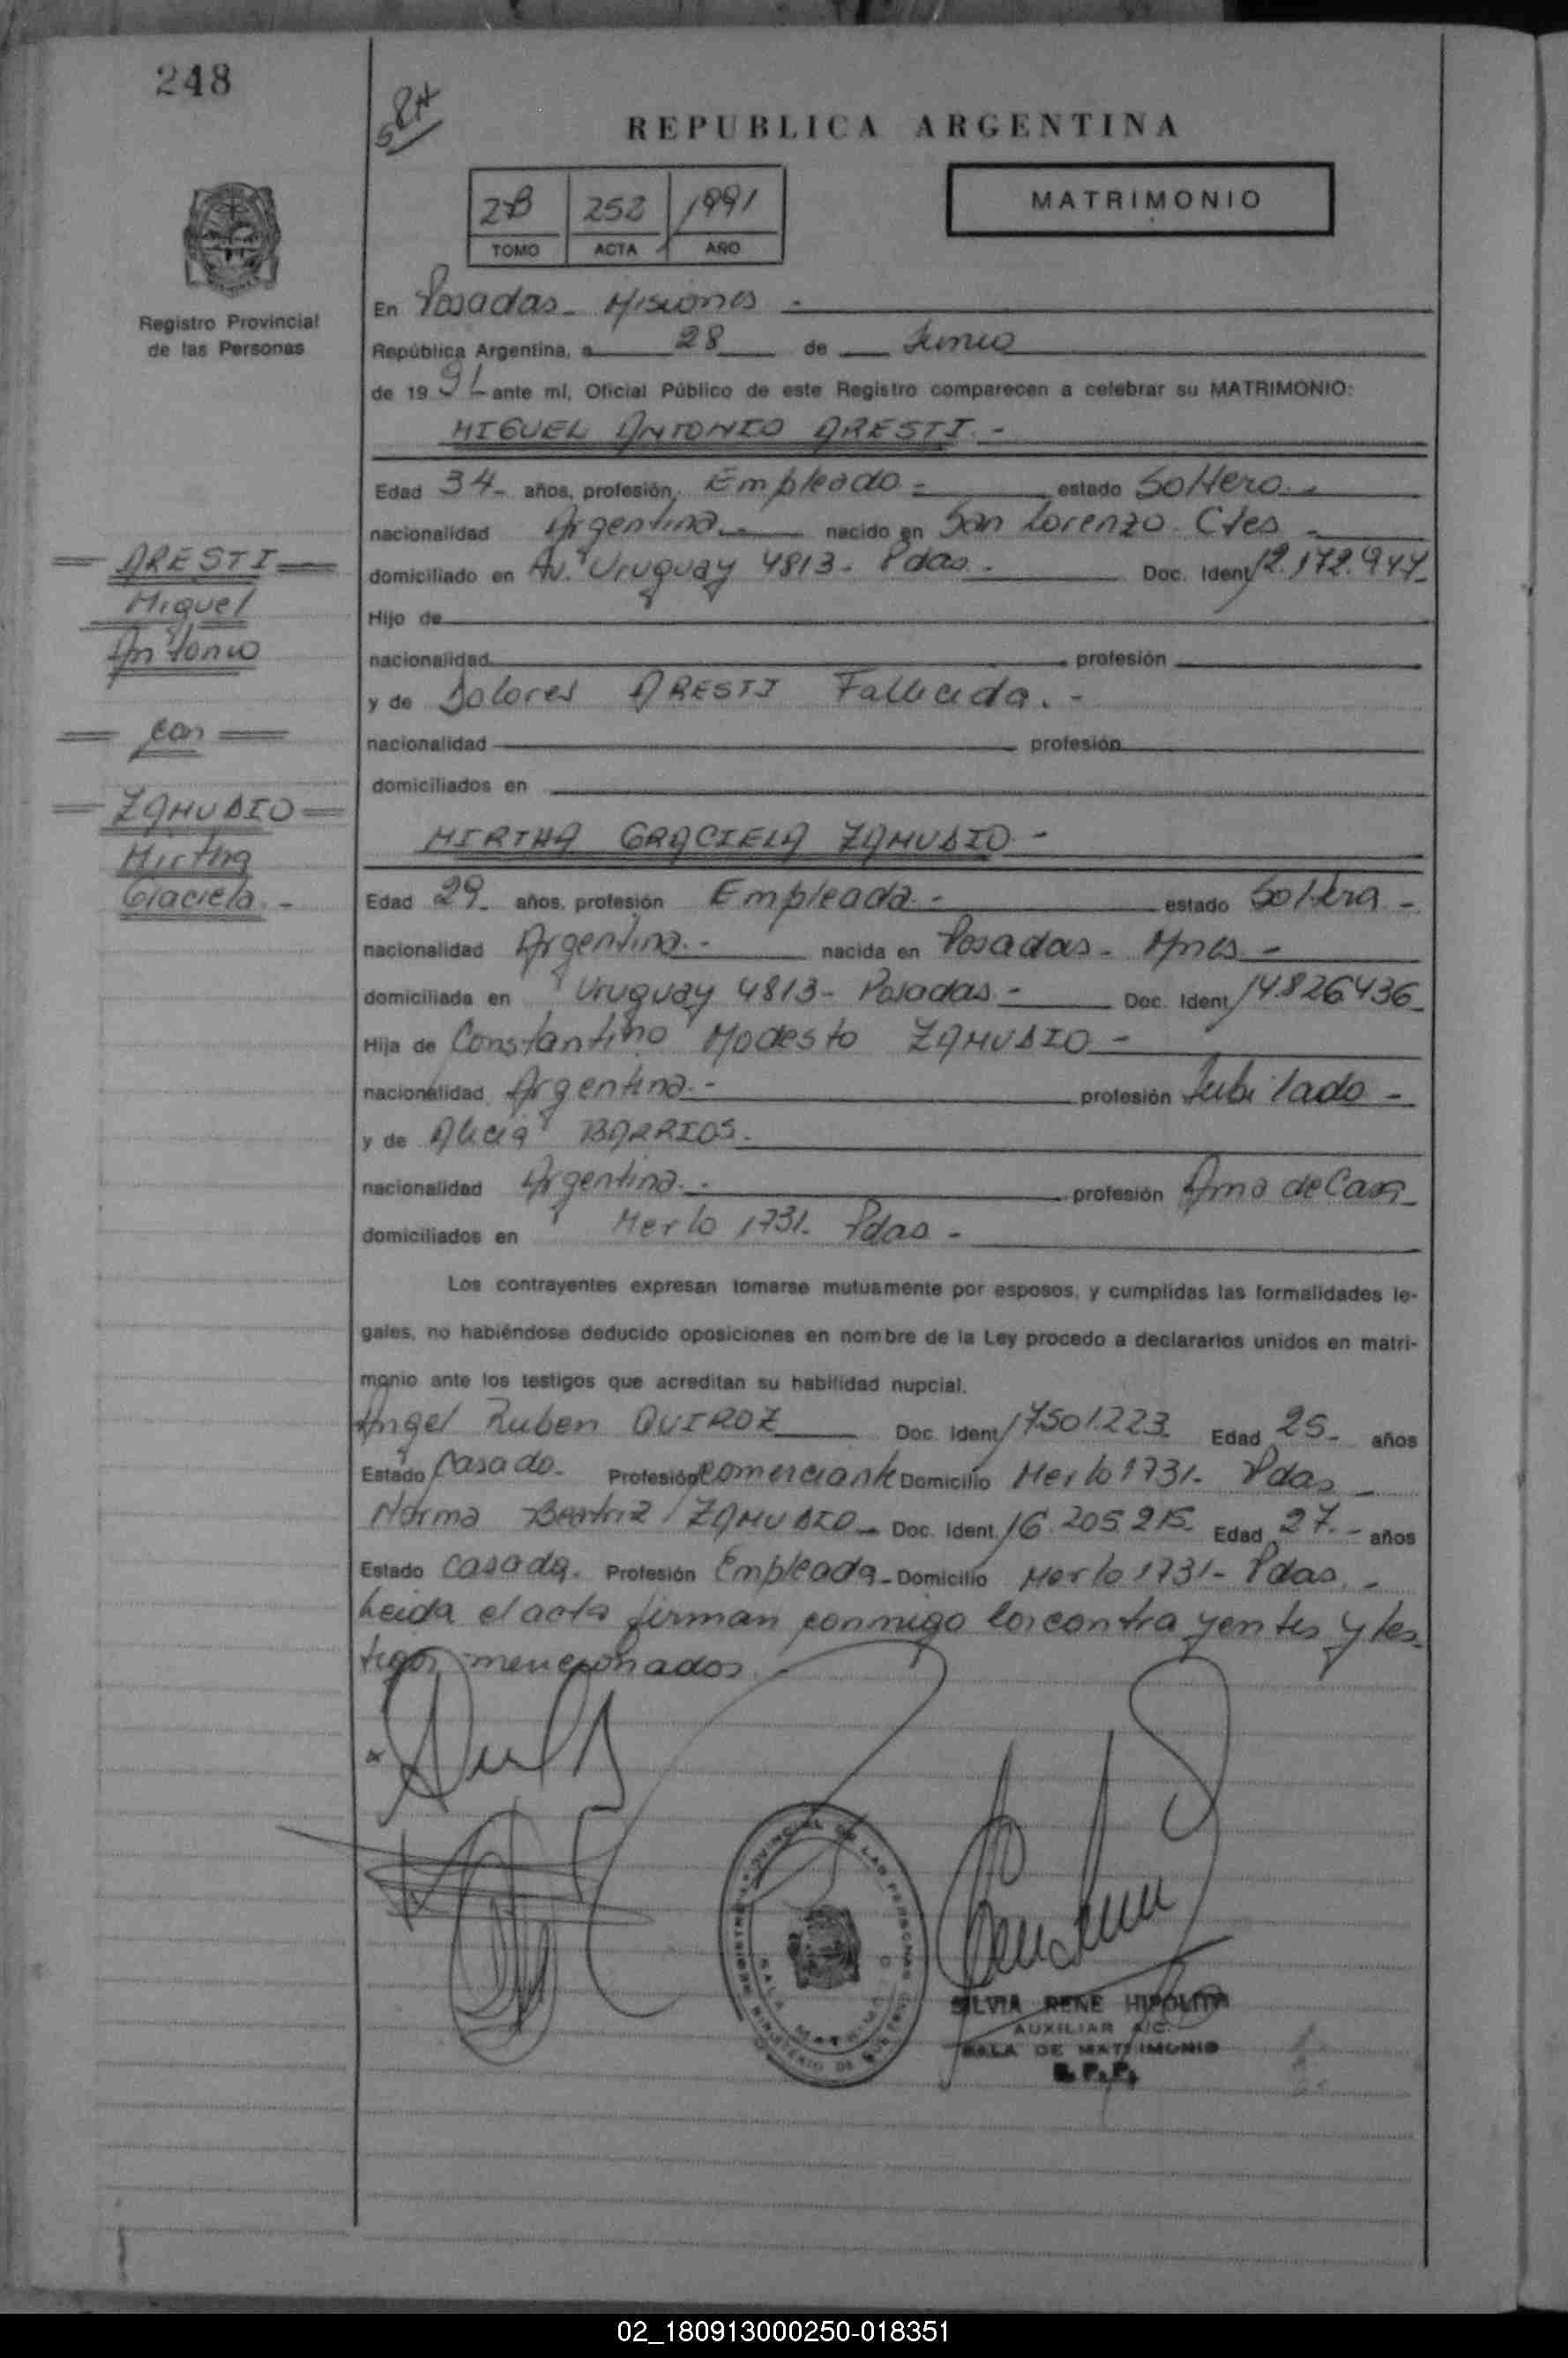 248
REPUBLICA ARGENTINA
2B 252 1991
TOMO ACTA AÑO
MATRIMONIO
Registro Provincial
de las Personas
En Posadas - Misiones -
República Argentina, a 28 de Junio
de 1991 ante mí, Oficial Público de este Registro comparecen a celebrar su MATRIMONIO:
MIGUEL ANTONIO ARESTI -
Edad 34 - años, profesión, Empleado - estado Soltero -
nacionalidad Argentina - nacido en San Lorenzo Ctes -
domiciliado en Av. Uruguay 4813 - Pdas - Doc. Ident 12.172.947 -
Hijo de
nacionalidad profesión
y de Dolores ARESTI Fallecida. -
nacionalidad profesión
domiciliados en
ARESTI
Miguel
Antonio
con
ZAMUDIO
Mirtha
Graciela. -
MIRTHA GRACIELA ZAMUDIO -
Edad 29 - años, profesión Empleada - estado Soltera -
nacionalidad Argentina. - nacida en Posadas - Mnes -
domiciliada en Uruguay 4813 - Posadas - Doc. Ident 14.826436 -
Hija de Constantino Modesto ZAMUDIO -
nacionalidad Argentina. - profesión Jubilado -
y de Alicia BARRIOS.
nacionalidad Argentina. - profesión Ama de Casa -
domiciliados en Merlo 1731 - Pdas -
Los contrayentes expresan tomarse mutuamente por esposos, y cumplidas las formalidades le-
gales, no habiéndose deducido oposiciones en nombre de la Ley procedo a declararlos unidos en matri-
monio ante los testigos que acreditan su habilidad nupcial.
Angel Ruben QUIROZ Doc. Ident 17501.223 Edad 25 - años
Estado Casado - Profesión Comerciante Domicilio Merlo 1731 - Pdas -
Norma Beatriz ZAMUDIO - Doc. Ident. 16.205.215 - Edad 27. - años
Estado Casada. Profesión Empleada - Domicilio Merlo 1731 - Pdas. -
Leida el acta firman conmigo los contrayentes y tes-
tigos mencionados.
SILVIA RENE HIPOLITA
AUXILIAR A/C.
SALA DE MATRIMONIO
R. P. P.
02_180913000250-018351